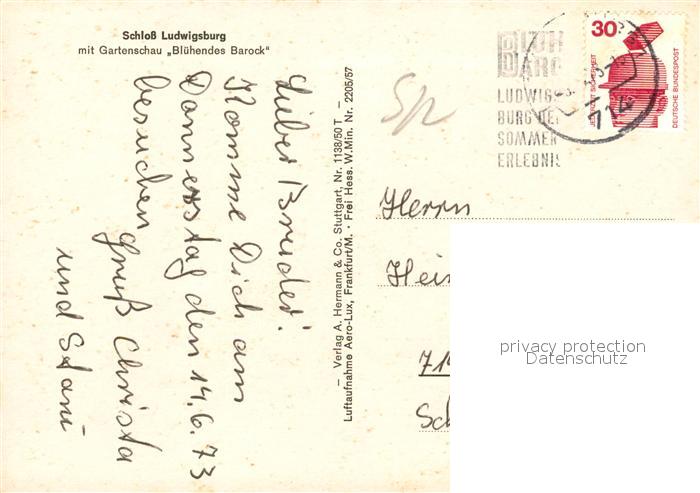 Schloß Ludwigsburg
mit Gartenschau „Blühendes Barock"
Lieber Bruder!
Komme Dich am
Donnerstag den 14.6.73
besuchen
Gruß Christa
und Stani
— Verlag A. Hermann & Co. Stuttgart, Nr. 1138/50 T —
Luftaufnahme Aero-Lux, Frankfurt/M. · Frei Hess. W.Min. Nr. 2205/57
LUDWIGS
BURG DE
SOMMER
ERLEBNIS
30
JEDERZEIT SICHERHEIT
DEUTSCHE BUNDESPOST
714
Herrn
Hein
71
Sch
privacy protection
Datenschutz